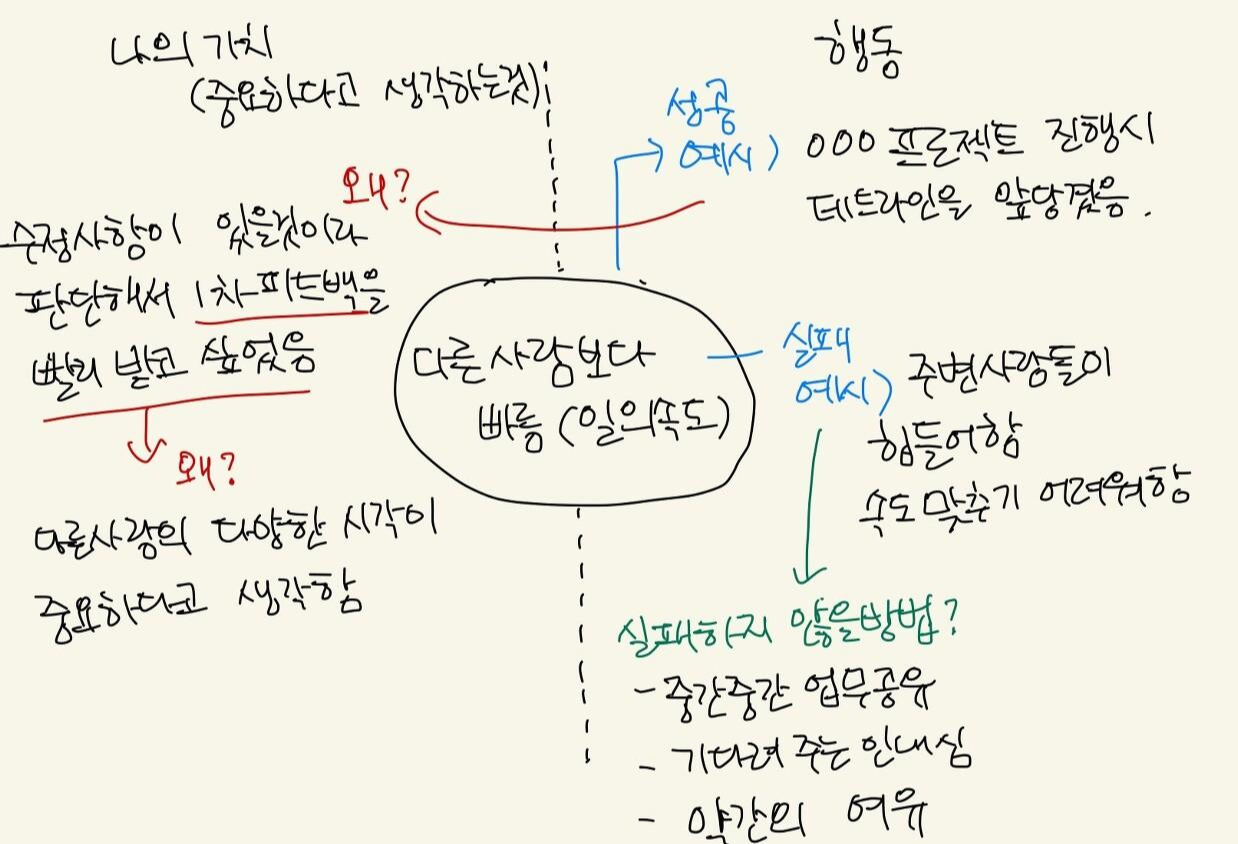 나의 가치
(중요하다고 생각하는것)
왜?
수정사항이 있을것이라
판단해서 1차 피드백을
빨리 받고 싶었음
왜?
다른사람의 다양한 시각이
중요하다고 생각함
다른 사람보다
빠름 (일의속도)
행동
성공
예시) 000 프로젝트 진행시
데드라인을 앞당겼음.
실패
예시) 주변사람들이
힘들어함
속도 맞추기 어려워함
실패하지 않을방법?
- 중간중간 업무공유
- 기다려 주는 인내심
- 약간의 여유